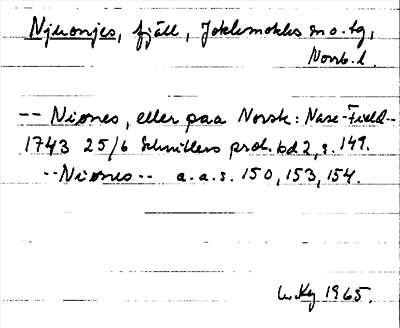 Njuonjes, fjäll, Jokkmokks sn o. tg,
Norrb. l.
-- Niones, eller paa Norsk: Nase-Field--
1743 25/6 Schnitlers prot. bd 2, s. 149.
--Niones-- a.a.s. 150, 153, 154.
1965.